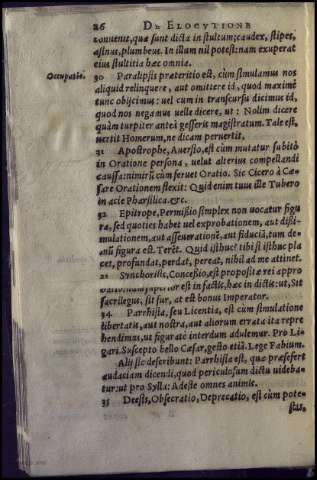 26 DE ELOCVTIONE
conuenit, quæ sunt dicta in stultum; caudex, stipes,
asinus, plumbeus. In illum nil potest: nam exuperat
eius stultitia hæc omnia.
Occupatio.
30 Paralipsis præteritio est, cùm simulamus nos
aliquid relinquere, aut omittere id, quod maximè
tunc obijcimus: vel cum in transcursu dicimus id,
quod nos negamus velle dicere, ut: Nolim dicere
quàm turpiter anteà gesseris magistratum. Tale est,
vertit Homerum, ne dicam peruertit.
31 Apostrophe, Auersio, est cùm mutatur subitò
in Oratione persona, uelut alterius compellandi
caussa: nimirùm cùm feruet Oratio. Sic Cicero à Cæ-
sare Orationem flexit: Quid enim tuus ille Tubero
in acie Pharsalica. &c.
32 Epitrope, Permissio simplex non uocatur figu
ra, sed quoties habet uel exprobationem, aut dissi-
mulationem, aut asseuerationē, aut fiduciā, tum de-
mū figura est. Terēt. Quid isthuc? tibi si isthuc pla
cet, profundat, perdat, pereat, nihil ad me attinet.
Synchorisis, Concessio, est propositæ rei appro
est in factis, hæc in dictis: ut, Sit
sacrilegus, sit fur, at est bonus Imperator.
34 Parrhisia, seu Licentia, est cum simulatione
libertatis, aut nostra, aut aliorum errata ita repre
hendimus, ut figuratè interdum adulemur. Pro Li-
gari. Suscepto bello Cæsar, gesto etiā. Lege Fabium.
Alij sic describunt: Parrhisia est, quæ præsefert
audaciam dicendi, quod periculosum dictu uideba-
tur: ut pro Sylla: Adeste omnes animis.
35 Deesis, Obsecratio, Deprecatio, est cùm pote-
stas,